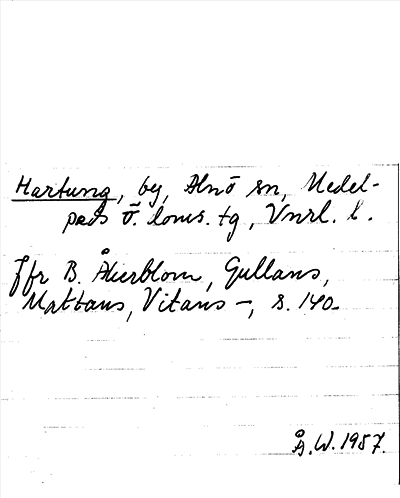 Hartung, by, Alnö sn, Medel-
pads Ö. doms. tg, Vnrl. l.
Jfr B. Åkerblom, Gullans,
Mattans, Vitans –, s. 140.
Å.W. 1987.